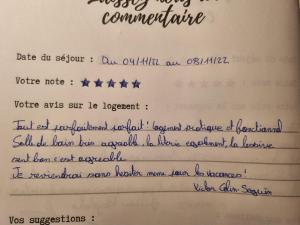 Laissez nous un
commentaire
Date du séjour : Du 04/11/22 au 08/11/22
Votre note : ★★★★★
Votre avis sur le logement :
Tout est parfaitement parfait ! logement pratique et fonctionnel
Salle de bain très agréable, la literie également, la lessive
sent bon c'est agréable.
Je reviendrai sans hésiter même pour les vacances !
Victor Colin
Vos suggestions :